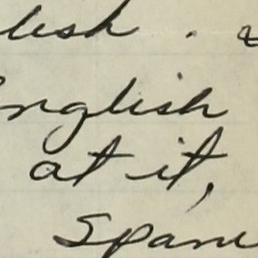 lish.
English
at it,
Span